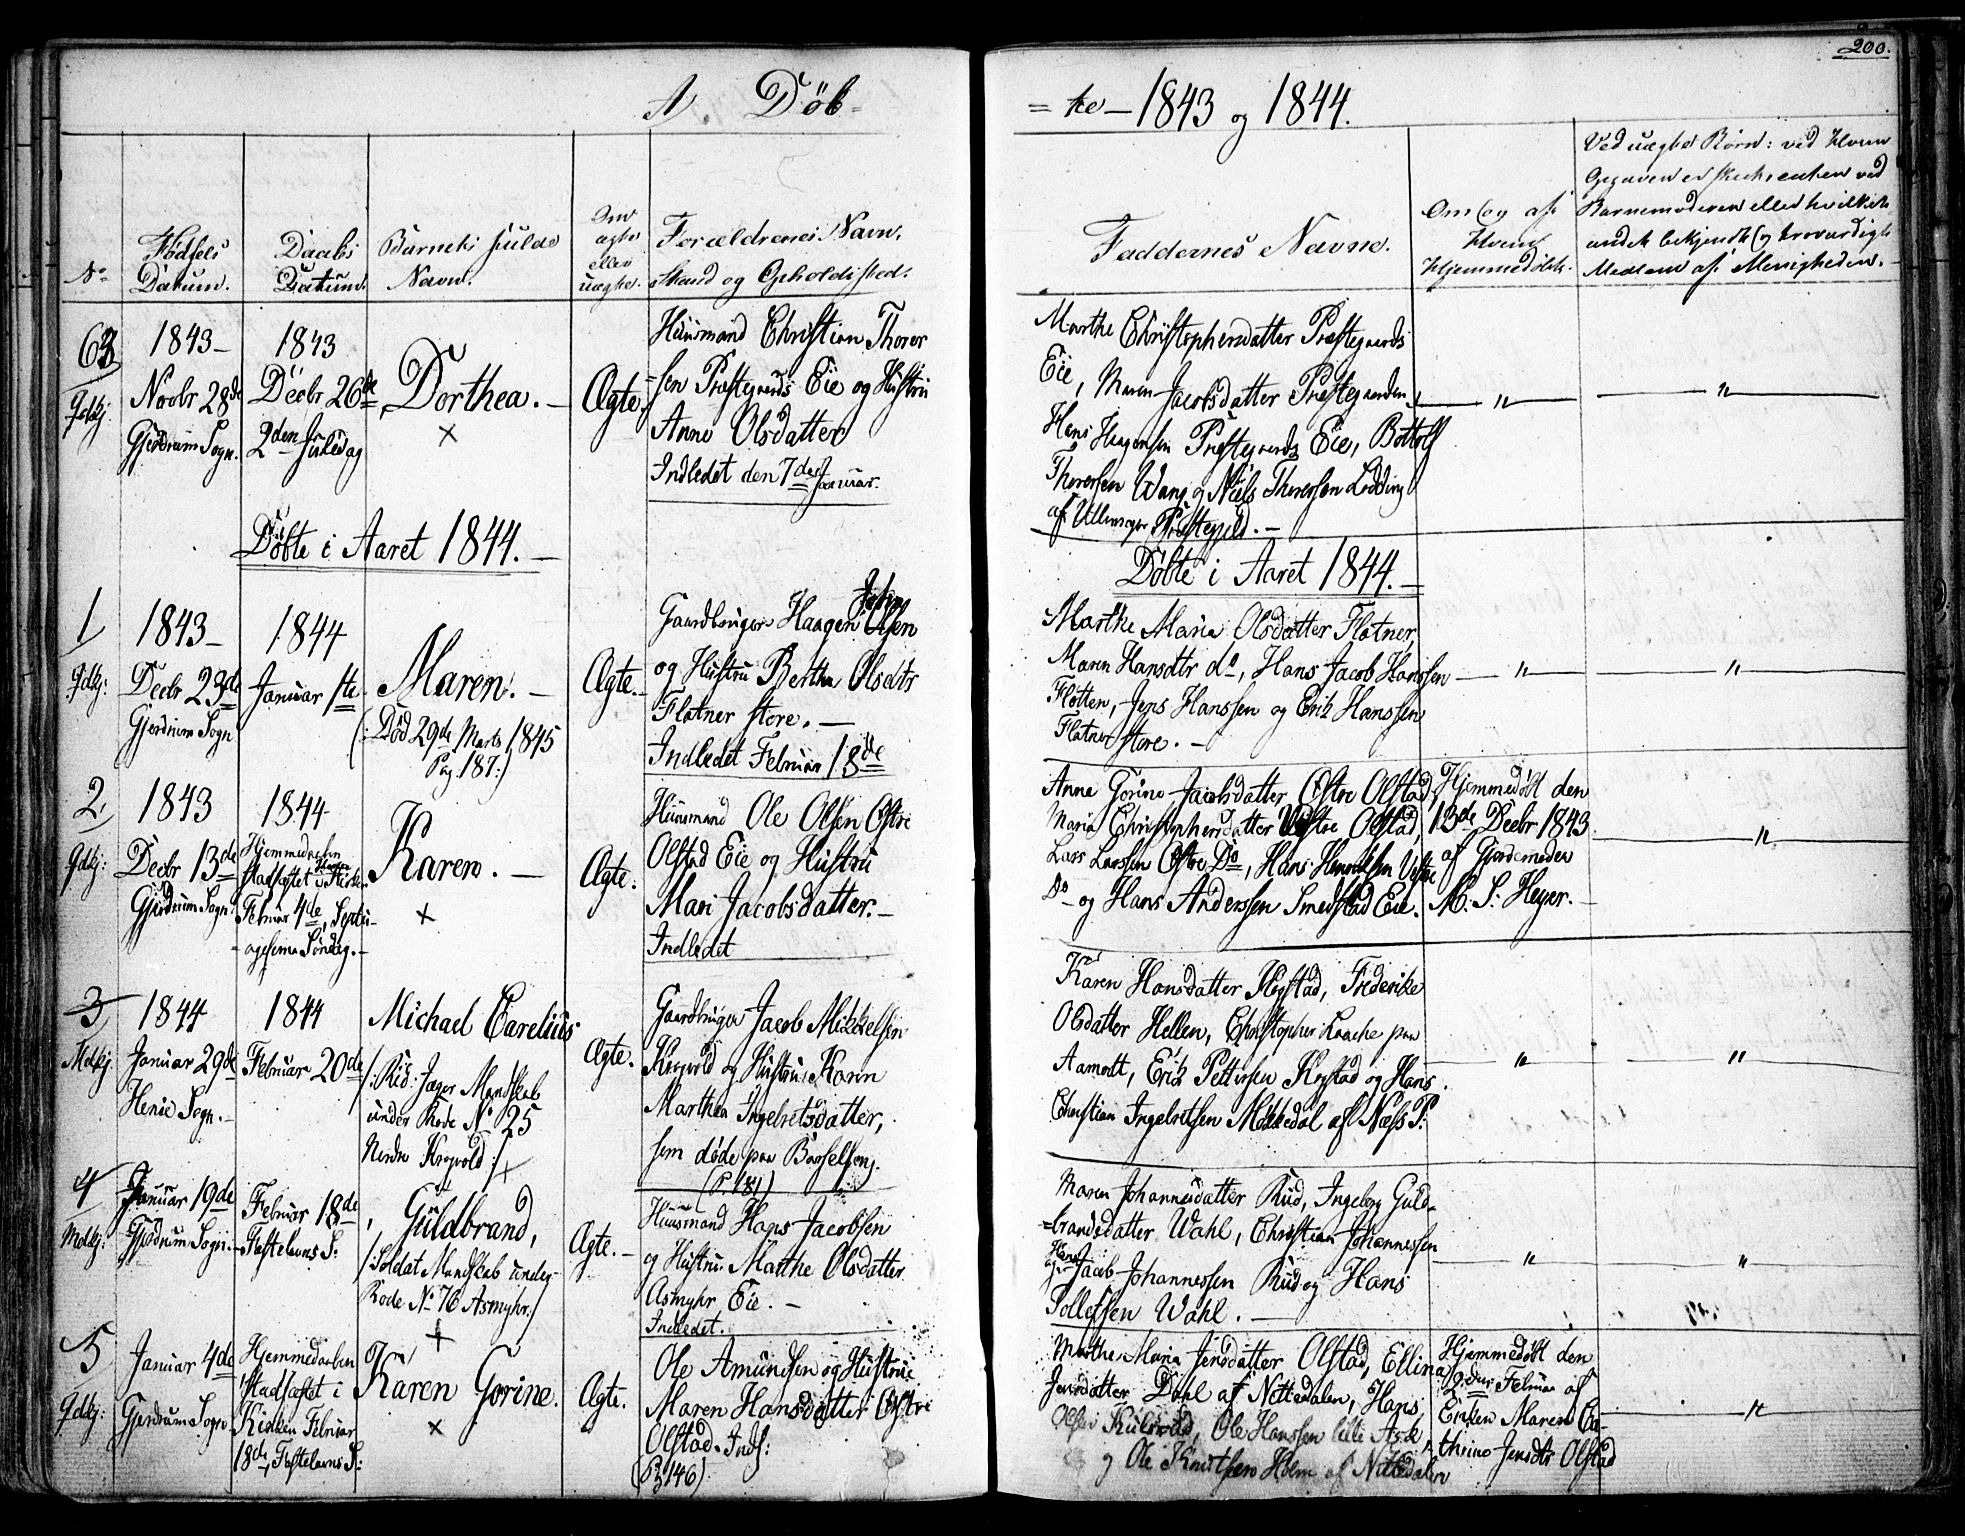 200.
A. Döb-
= te - 1843 og 1844.
No
Födsels
Datum.
Daabs
Datum.
Barnets fulde
Navn.
Om
ægte
eller
uægte.
Forældrenes Navn,
Stand og Opholdssted.
Faddernes Navne.
Om (og af
Hvem
Hjemmedöbt.
Ved uægte Börn: ved Hvem
Opgaven er skeet, enten ved
Barnemoderen eller hvilket
andet bekjendt (og troværdigt
Medlem af Menigheden.
63
Qdkj:
1843 -
Novbr 28de
Gjerdrum Sogn.
1843
Decbr 26de
2den Juledag
Dorthea. -
×
Ægte.
Huusmand Christian Thorer
=sen Præstegaards Eie og Hustru
Anne Olsdatter
Indledet den 7de Januar.
Marthe Christophersdatter Præstegaards
Eie, Maren Jacobsdatter Præstegaarden,
Hans Haagensen Præstegaards Eie, Bottolf
Thorersen Wang og Niels Thorersen Lodding
af Ullensager Præstegjeld. -
"
"
Döbte i Aaret 1844. -
Döbte i Aaret 1844. -
1
Qdkj:
1843 -
Decbr 23de
Gjerdrum Sogn
1844
Januar 1ste
Maren. -
(: Död 29de Marts 1845
Pag. 187:)
Ægte.
Gaardbruger Haagen Olsen
og Hustru Berthe Olsdtr
Flatner store. -
Indledet Februar 18de
Marthe Maria Olsdatter Flatner,
Maren Hansdtr do, Hans Jacob Hanssen
Flatten, Jens Hanssen og Erik Hanssen
Flatner store. -
"
"
2
Qdkj:
1843
Decbr 13de
Gjerdrum Sogn.
1844
Hjemmedaaben
stadfæstet i Kirken
Februar 4de, Septu-
agesima Söndag. -
Karen. -
×
Ægte.
Huusmand Ole Olsen Østre
Olstad Eie og Hustru
Mari Jacobsdatter. -
Indledet
Anne Gorine Jacobsdatter Østre Olstad,
Maria Christophersdatter Vestre Olstad,
Lars Larssen Østre Do, Hans Henriksen Vestre
Do - og Hans Anderssen Smedstad Eie.
Hjemmedöbt den
13de Decbr 1843
af Gjordemoder
M. S. Heyer. -
"
3
Mdkj:
1844
Januar 29de
Henie Sogn. -
1844
Februar 20de
Michael Carelius
(: Rid: Jæger Mandskab
under Rode No 25
Nordre Krogvold :)
×
Ægte.
Gaardbruger Jacob Mikkelsen
Krogvold og Hustru Karen
Marthea Ingebretsdatter,
som döde paa Barselseng.
(P. 181)
Karen Hansdatter Kogstad, Frederike
Olsdatter Hellen, Christopher Laache paa
Aamodt, Erik Pettersen Kogstad og Hans
Christian Ingebretsen Mokkedal af Næss P:
"
"
4
Mdkj:
Januar 19de
Gjerdrum Sogn. -
Februar 18de,
Fastelavns S:
Guldbrand,
(: Soldat Mandskab under
Rode No 76 Asmyhr:)
+
Ægte. -
Huusmand Hans Jacobsen
og Hustru Marthe Olsdatter
Asmyhr Eie. -
Indledet.
Maren Johannesdatter Rud, Ingeborg Guld-
=brandsdatter Wahl, Christian Johannessen
Jacob Johannessen Rud og Hans
Tollefsen Wahl. -
"
"
5
Qdkj:
Januar 4de
Gjerdrum Sogn
Hjemmedaaben
stadfæstet i
Kirken Februar
18de, Fastelavns S:
Karen Gorine.
×
Ægte.
Ole Amundsen og Hustrue
Maren Hansdatter Østre
Olstad. Indl:
(P. 146)
Marthe Maria Jensdatter Olstad, Ellina
Jensdatter Dahl af Nittedalen, Hans
Olsen Kulsrud, Ole Hanssen lille Ask,
og Ole Knutsen Holm af Nittedalen
Hjemmedöbt den
Februar af
Enken Maren Ca-
thrine Jensdtr Olstad
"